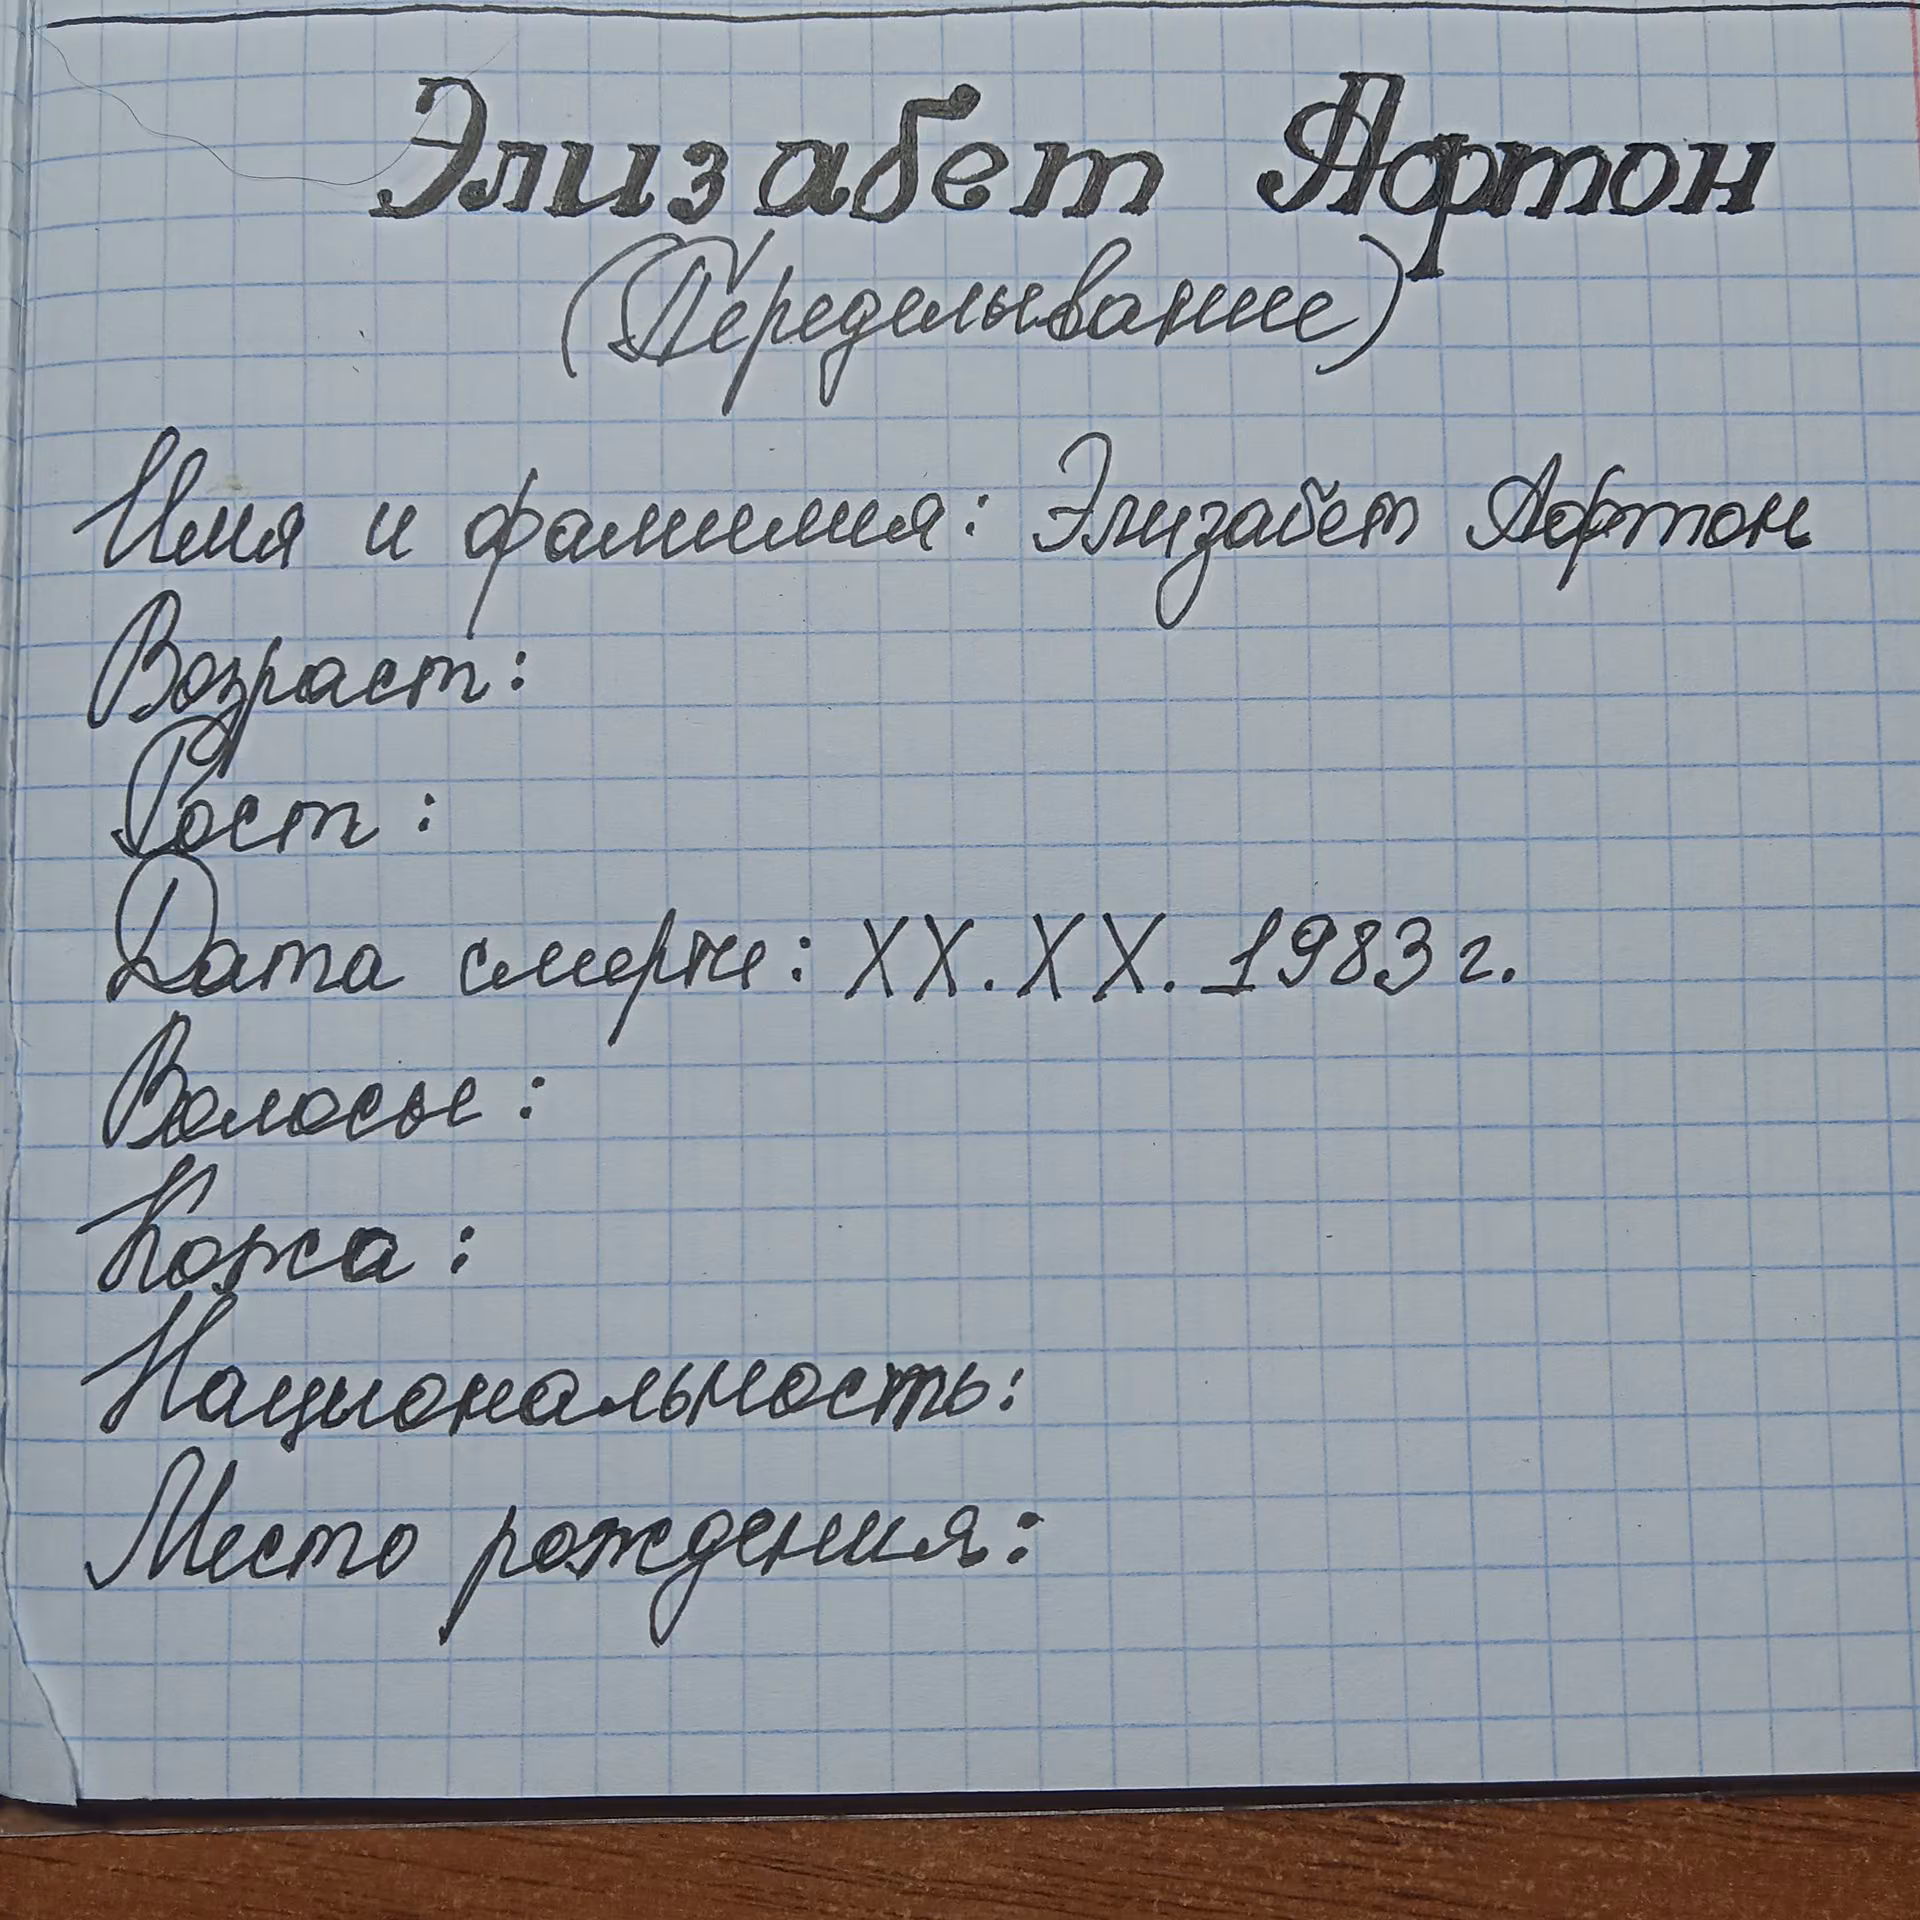 Элизабет Афтон
(Переделывание)
Имя и фамилия: Элизабет Афтон
Возраст:
Рост:
Дата смерти: XX.XX.1983 г.
Волосы:
Кожа:
Национальность:
Место рождения: